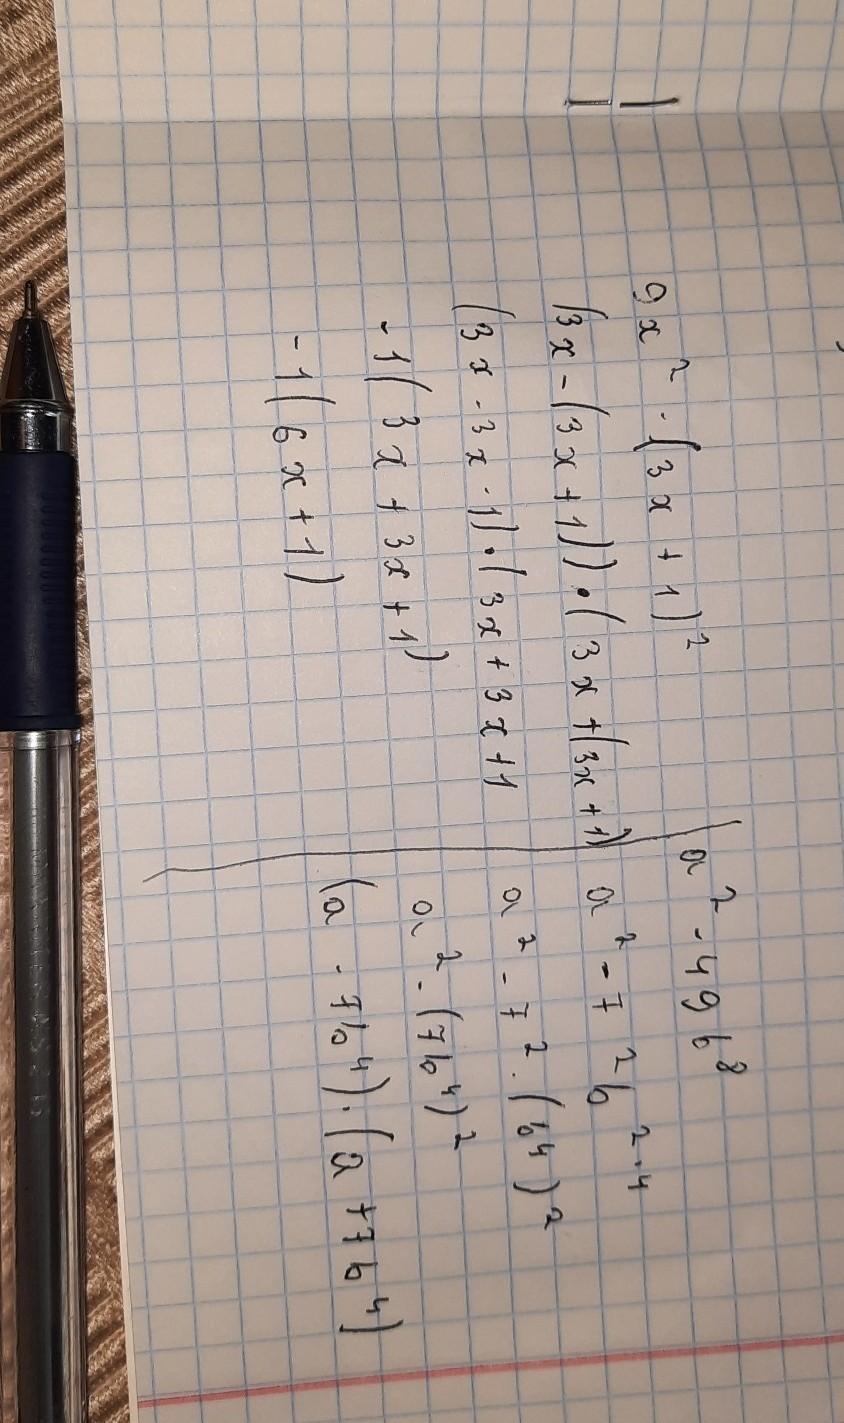 9x² - (3x + 1)²
(3x - (3x + 1)) · (3x + (3x + 1)
(3x - 3x - 1) · (3x + 3x + 1
-1(3x + 3x + 1)
-1(6x + 1)
a² - 49b⁸
a² - 7²b²·⁴
a² - 7² · (b⁴)²
a² - (7b⁴)²
(a - 7b⁴) · (a + 7b⁴)